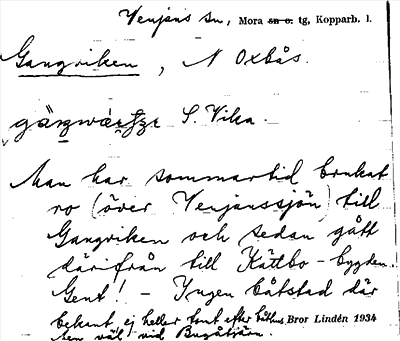 Venjans sn, Mora sn o. tg, Kopparb. l.
Gangviken, N Oxbås.
S. Vika.
Man har sommartid brukat
ro (över Venjanssjön) till
Gangviken och sedan gått
därifrån till Kättbo-bygden.
Gent! - Ingen båtstad där
bekant, ej heller tomt efter båthus Bror Lindén 1934
men väl vid